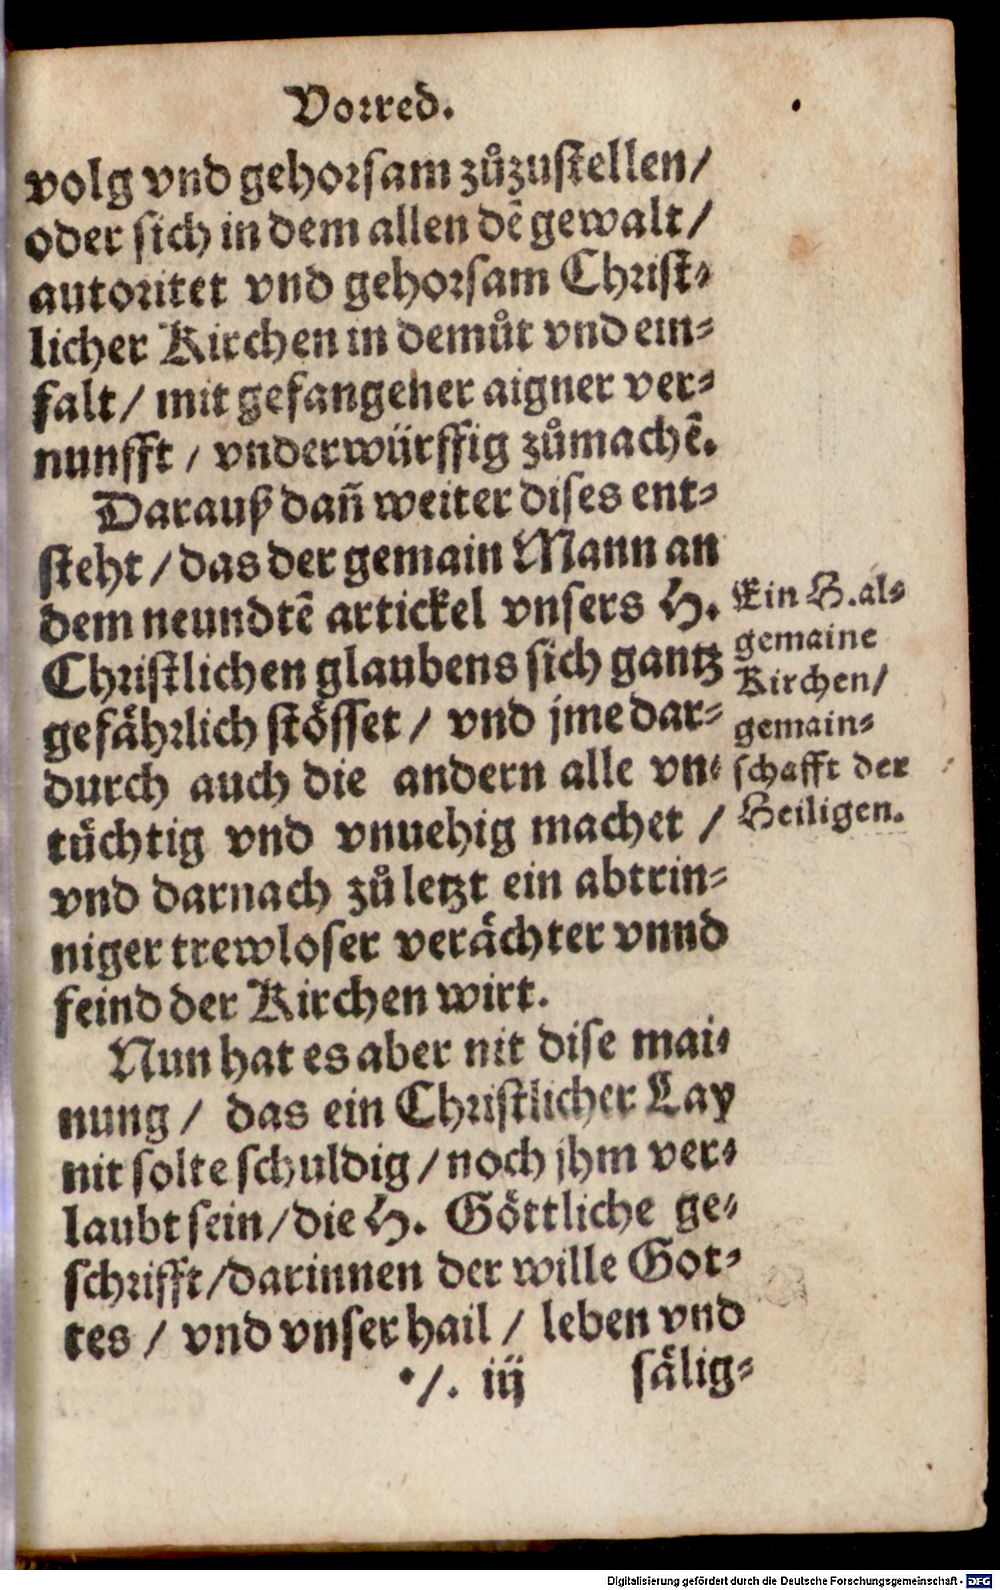 Vorred.
volg vnd gehorsam zůzustellen/
oder sich in dem allen dē gewalt/
autoritet vnd gehorsam Christ-
licher Kirchen in demůt vnd ein-
falt/ mit gefangener aigner ver-
nunfft / vnderwürffig zůmachē.
Darauß dañ weiter dises ent-
steht/das der gemain Mann an
dem neundtē artickel vnsers H.
Christlichen glaubens sich gantz
gefährlich stösset/ vnd jme dar-
durch auch die andern alle vn-
tüchtig vnd vnuehig machet /
vnd darnach zůletzt ein abtrin-
niger trewloser verächter vnnd
feind der Kirchen wirt.
Ein H. al-
gemaine
Kirchen/
gemain-
schafft der
Heiligen.
Nun hat es aber nit dise mai-
nung/ das ein Christlicher Lay
nit solte schuldig/noch jhm ver-
laubt sein/die H. Göttliche ge-
schrifft/darinnen der wille Got-
tes / vnd vnser hail / leben vnd
·/. iij sälig-
Digitalisierung gefördert durch die Deutsche Forschungsgemeinschaft - DFG